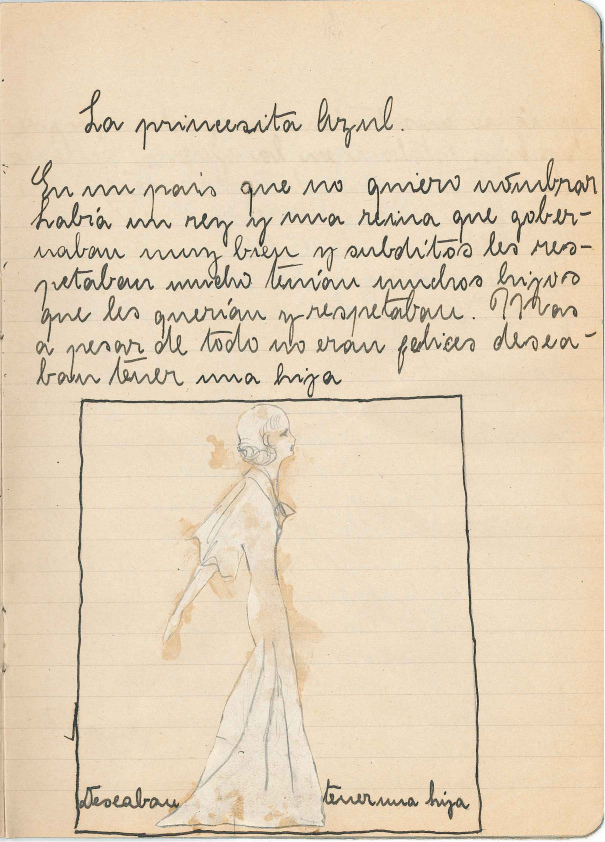 La princesita Azul.
En un pais que no quiero nombrar
había un rey y una reina que gober-
naban muy bien y subditos les res-
petaban mucho tenían muchos hijos
que les querían y respetaban. Mas
a pesar de todo no eran felices desea-
ban tener una hija
Deseaban tener una hija